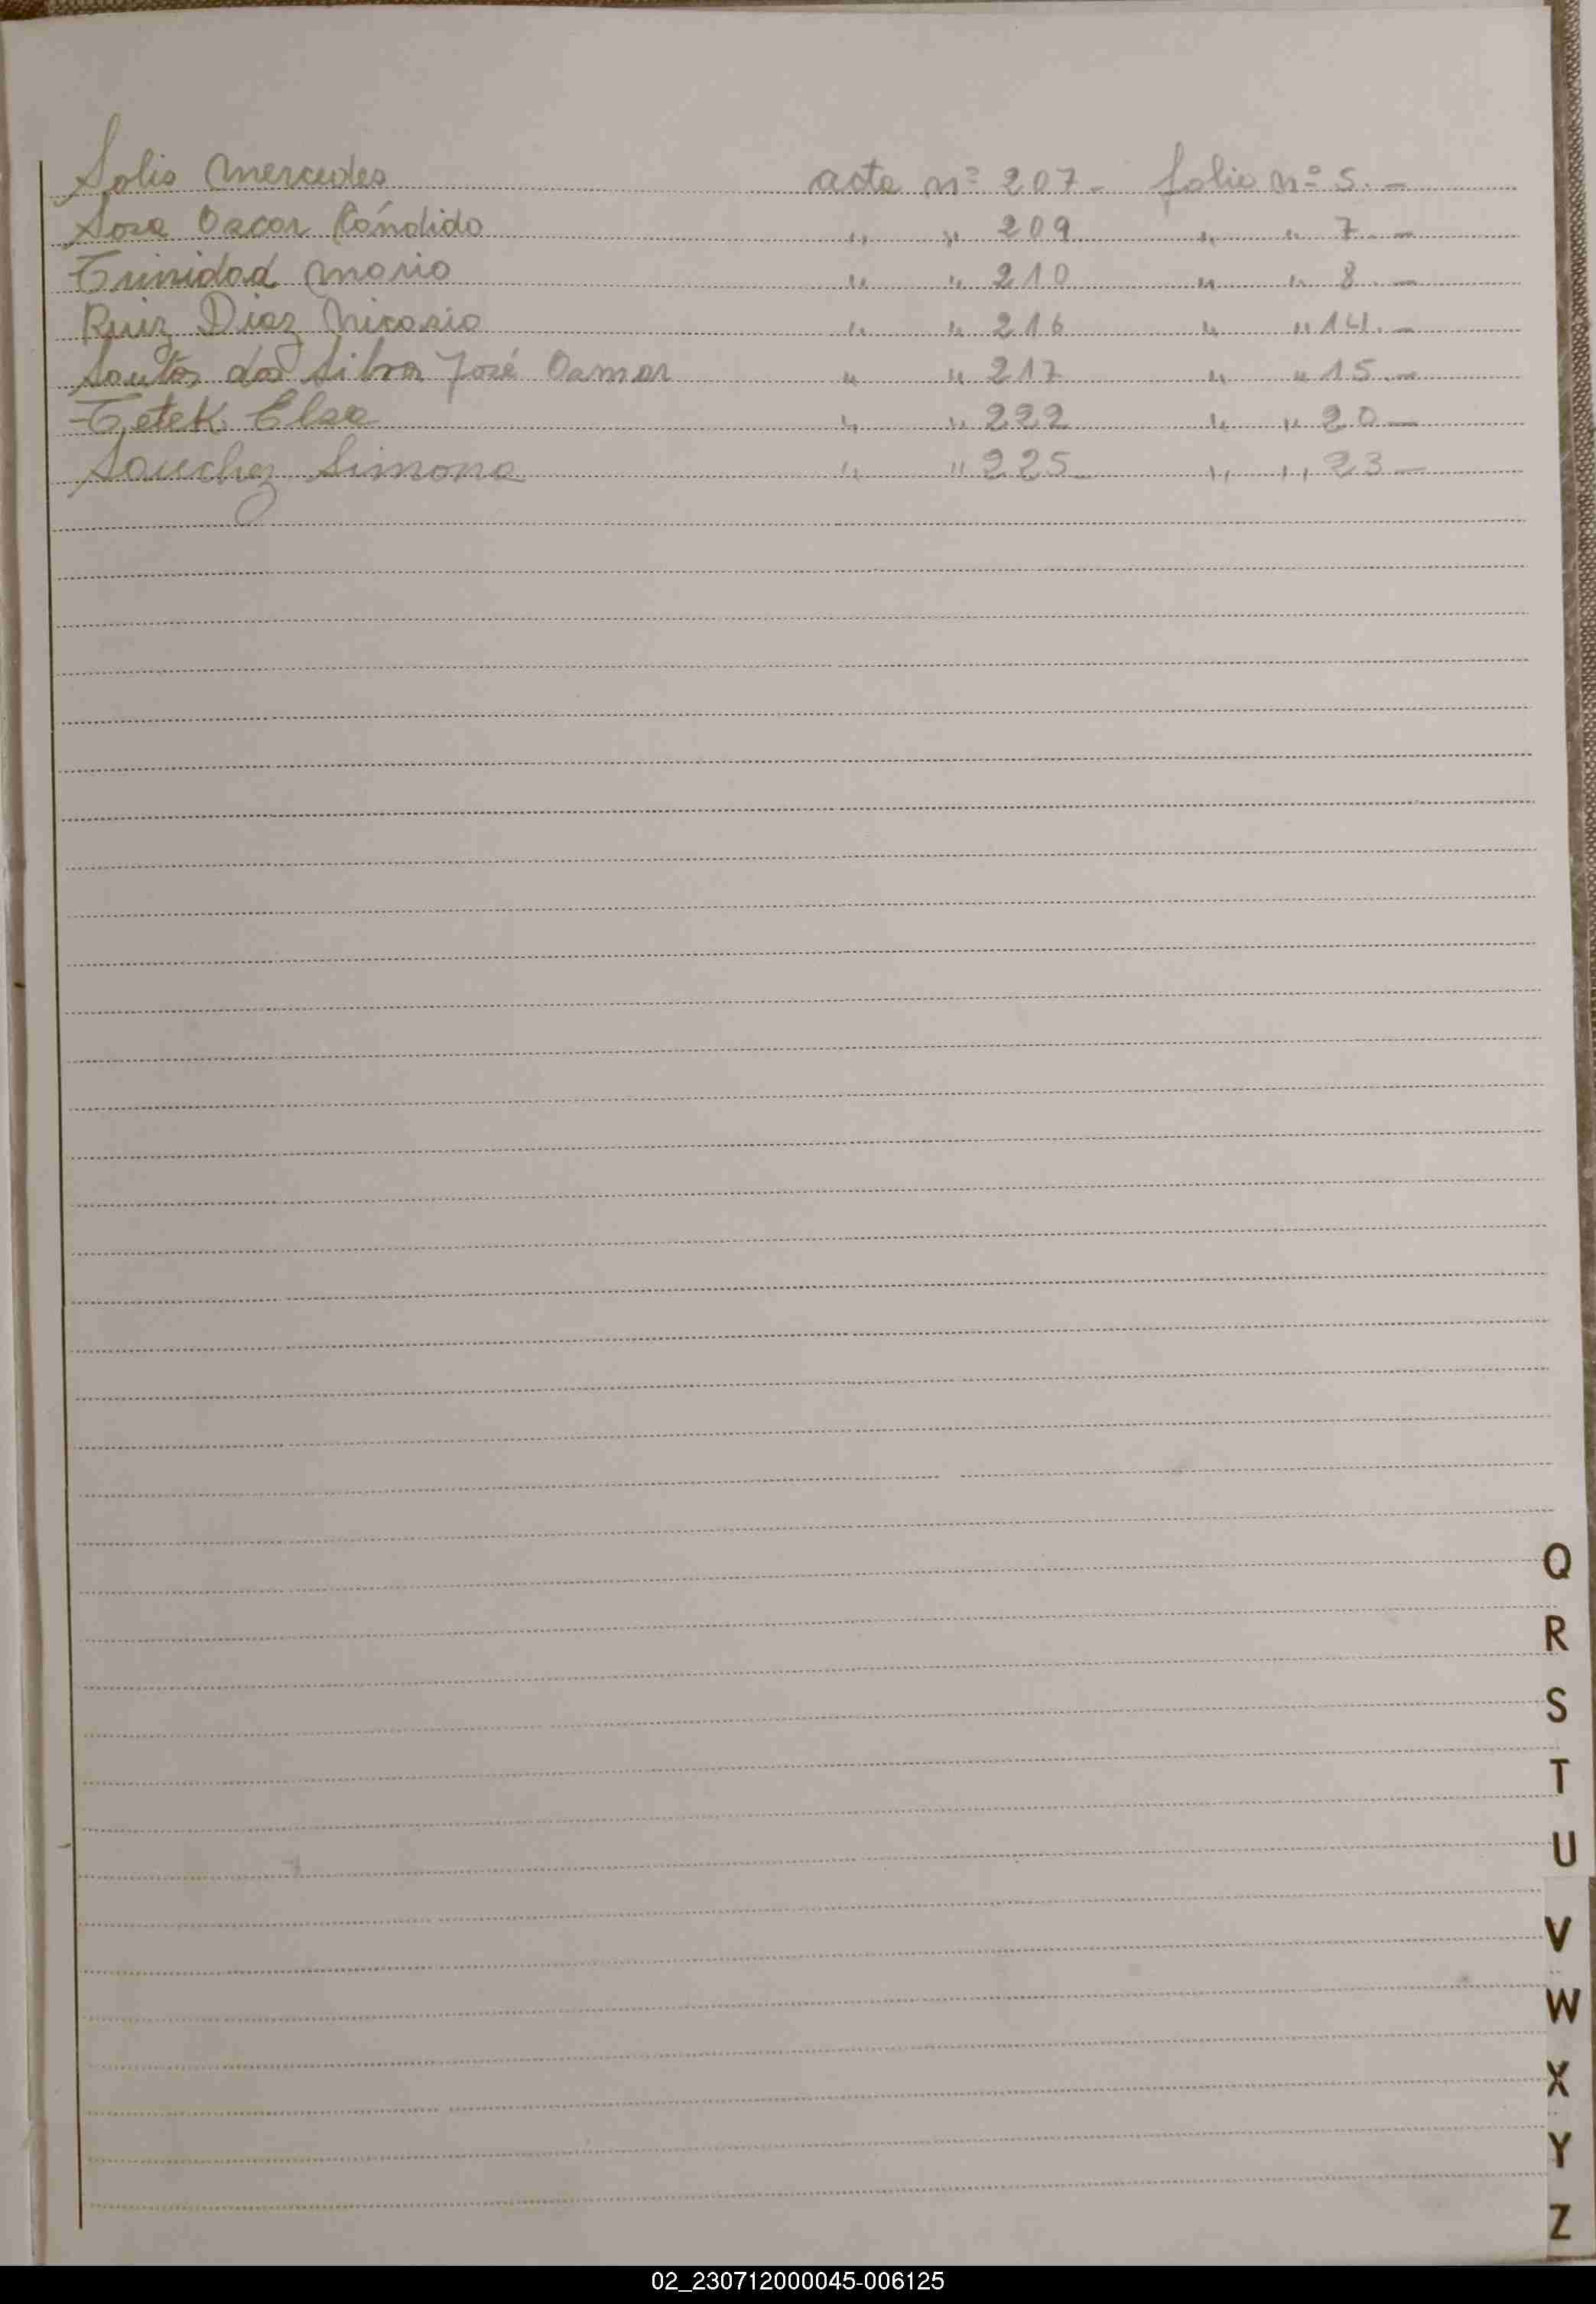 Solis Mercedes acta nº 207- folio nº 5.-
Sosa Oscar Cándido " " 209 " " 7.-
Trinidad Mario " " 210 " " 8.-
Ruiz Diaz Nicasio " " 216 " " 14.-
Santos da Silva José Osmar " " 217 " " 15.-
Tetek Elsa " " 222 " " 20-
Sanchez Simona " " 225- " " 23-
Q
R
S
T
U
V
W
X
Y
Z
02_230712000045-006125